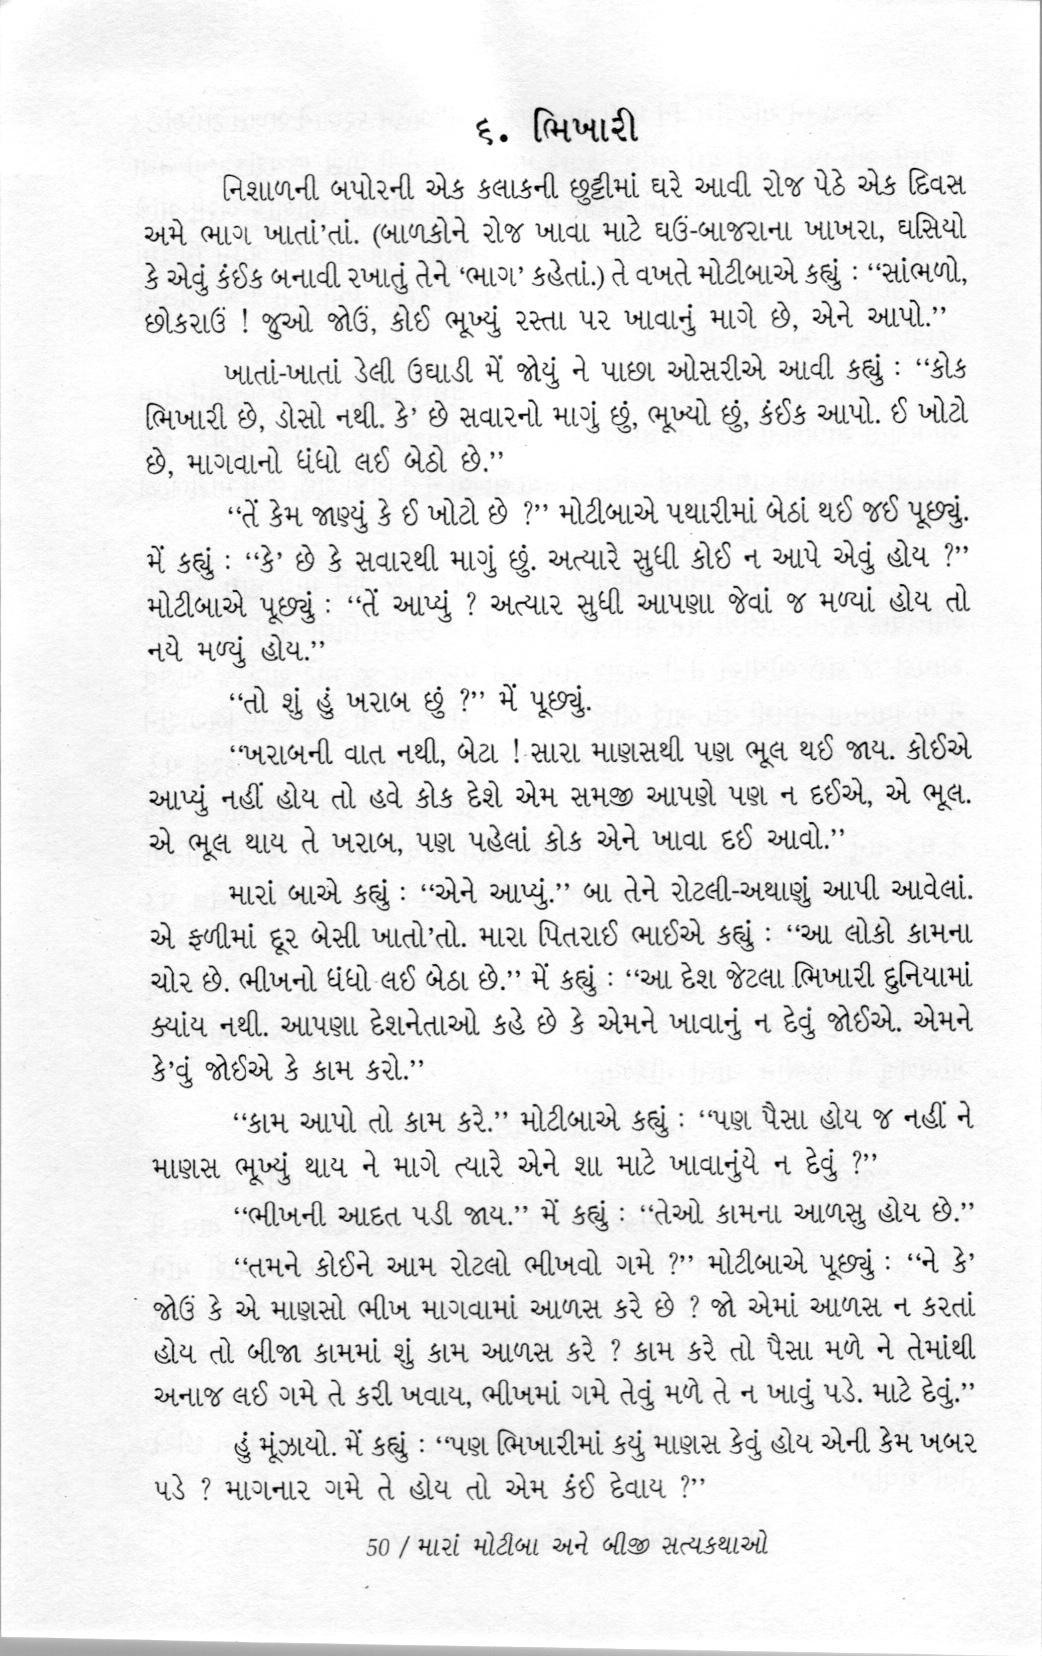 ૬. ભિખારી
નિશાળની બપોરની એક કલાકની છુટ્ટીમાં ઘરે આવી રોજ પેઠે એક દિવસ
અમે ભાગ ખાતાં'તાં. (બાળકોને રોજ ખાવા માટે ઘઉં-બાજરાના ખાખરા, ઘસિયો
કે એવું કંઈક બનાવી રખાતું તેને ‘ભાગ’ કહેતાં.) તે વખતે મોટીબાએ કહ્યું : “સાંભળો,
છોકરાઉં ! જુઓ જોઉં, કોઈ ભૂખ્યું રસ્તા પર ખાવાનું માગે છે, એને આપો.”
ખાતાં-ખાતાં ડેલી ઉઘાડી મેં જોયું ને પાછા ઓસરીએ આવી કહ્યું : “કોક
ભિખારી છે, ડોસો નથી. કે' છે સવારનો માગું છું, ભૂખ્યો છું, કંઈક આપો. ઈ ખોટો
છે, માગવાનો ધંધો લઈ બેઠો છે.”
“તેં કેમ જાણ્યું કે ઈ ખોટો છે ?” મોટીબાએ પથારીમાં બેઠાં થઈ જઈ પૂછ્યું.
મેં કહ્યું : “કે' છે કે સવારથી માગું છું. અત્યારે સુધી કોઈ ન આપે એવું હોય ?”
મોટીબાએ પૂછ્યું : “તેં આપ્યું ? અત્યાર સુધી આપણા જેવાં જ મળ્યાં હોય તો
નયે મળ્યું હોય.”
“તો શું હું ખરાબ છું ?” મેં પૂછ્યું.
“ખરાબની વાત નથી, બેટા ! સારા માણસથી પણ ભૂલ થઈ જાય. કોઈએ
આપ્યું નહીં હોય તો હવે કોક દેશે એમ સમજી આપણે પણ ન દઈએ, એ ભૂલ.
એ ભૂલ થાય તે ખરાબ, પણ પહેલાં કોક એને ખાવા દઈ આવો.”
મારાં બાએ કહ્યું : “એને આપ્યું.” બા તેને રોટલી-અથાણું આપી આવેલાં.
એ ફળીમાં દૂર બેસી ખાતો'તો. મારા પિતરાઈ ભાઈએ કહ્યું : “આ લોકો કામના
ચોર છે. ભીખનો ધંધો લઈ બેઠા છે.” મેં કહ્યું : “આ દેશ જેટલા ભિખારી દુનિયામાં
ક્યાંય નથી. આપણા દેશનેતાઓ કહે છે કે એમને ખાવાનું ન દેવું જોઈએ. એમને
કે'વું જોઈએ કે કામ કરો.”
“કામ આપો તો કામ કરે.” મોટીબાએ કહ્યું : “પણ પૈસા હોય જ નહીં ને
માણસ ભૂખ્યું થાય ને માગે ત્યારે એને શા માટે ખાવાનુંયે ન દેવું ?”
“ભીખની આદત પડી જાય.” મેં કહ્યું : “તેઓ કામના આળસુ હોય છે.”
“તમને કોઈને આમ રોટલો ભીખવો ગમે ?” મોટીબાએ પૂછ્યું : “ને કે'
જોઉં કે એ માણસો ભીખ માગવામાં આળસ કરે છે ? જો એમાં આળસ ન કરતાં
હોય તો બીજા કામમાં શું કામ આળસ કરે ? કામ કરે તો પૈસા મળે ને તેમાંથી
અનાજ લઈ ગમે તે કરી ખવાય, ભીખમાં ગમે તેવું મળે તે ન ખાવું પડે. માટે દેવું.”
હું મૂંઝાયો. મેં કહ્યું : “પણ ભિખારીમાં કયું માણસ કેવું હોય એની કેમ ખબર
પડે ? માગનાર ગમે તે હોય તો એમ કંઈ દેવાય ?”
50 / મારાં મોટીબા અને બીજી સત્યકથાઓ